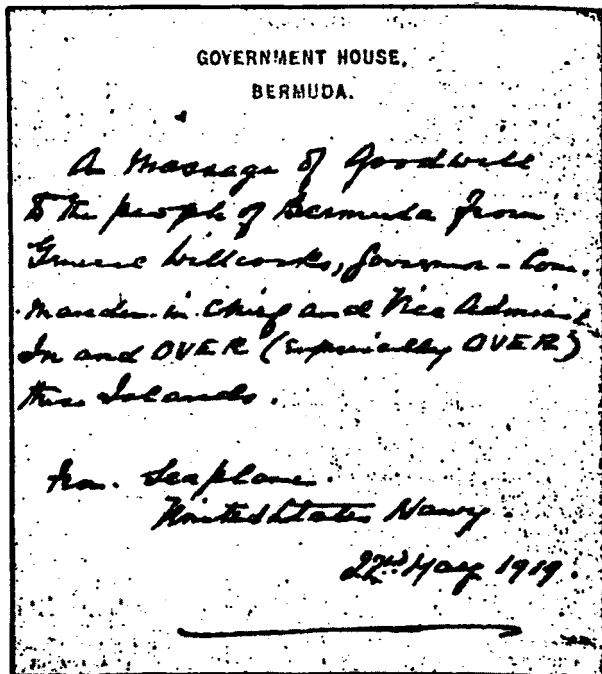 GOVERNMENT HOUSE,
BERMUDA.
A Message of Goodwill
To the people of Bermuda from
General Willcocks, Governor - Com.
mander. in. Chief and Vice Admiral
In and OVER (especially OVER)
these Islands.
from. Seaplane.
United States Navy.
22nd May 1919.